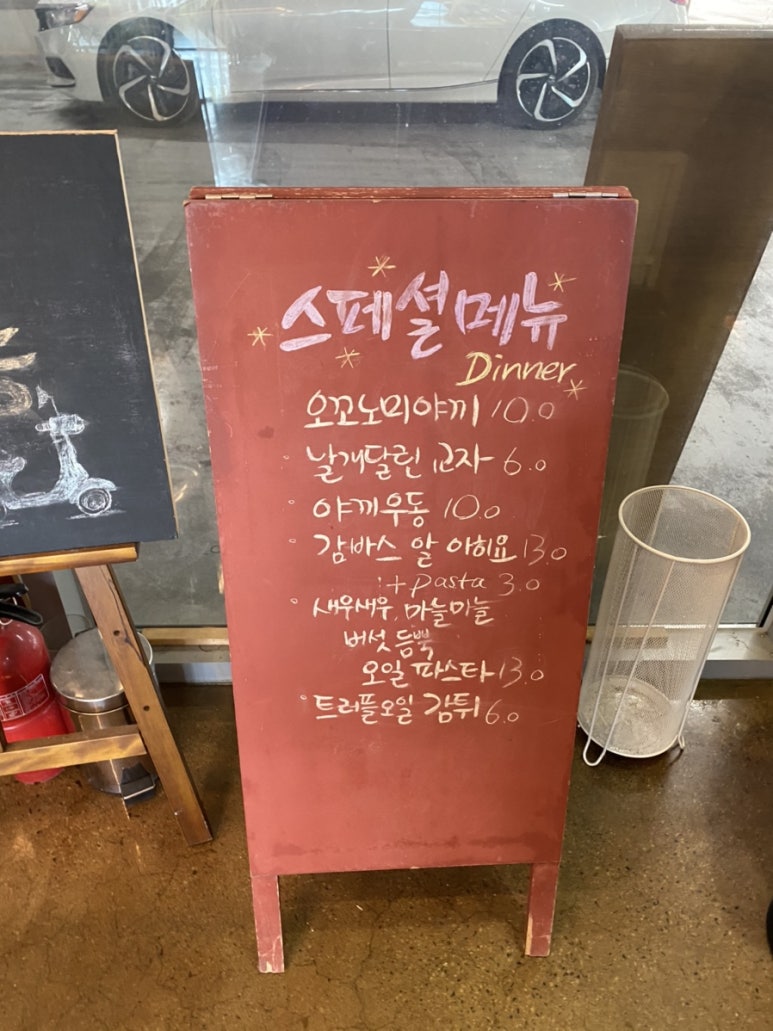 스페셜메뉴
Dinner
오꼬노미야끼 10.0
날개달린 교자 6.0
야끼우동 10.0
감바스 알 아히요 13.0
:+pasta 3.0
새우새우, 마늘마늘
버섯 듬뿍
오일 파스타 13.0
트러플오일 감튀 6.0